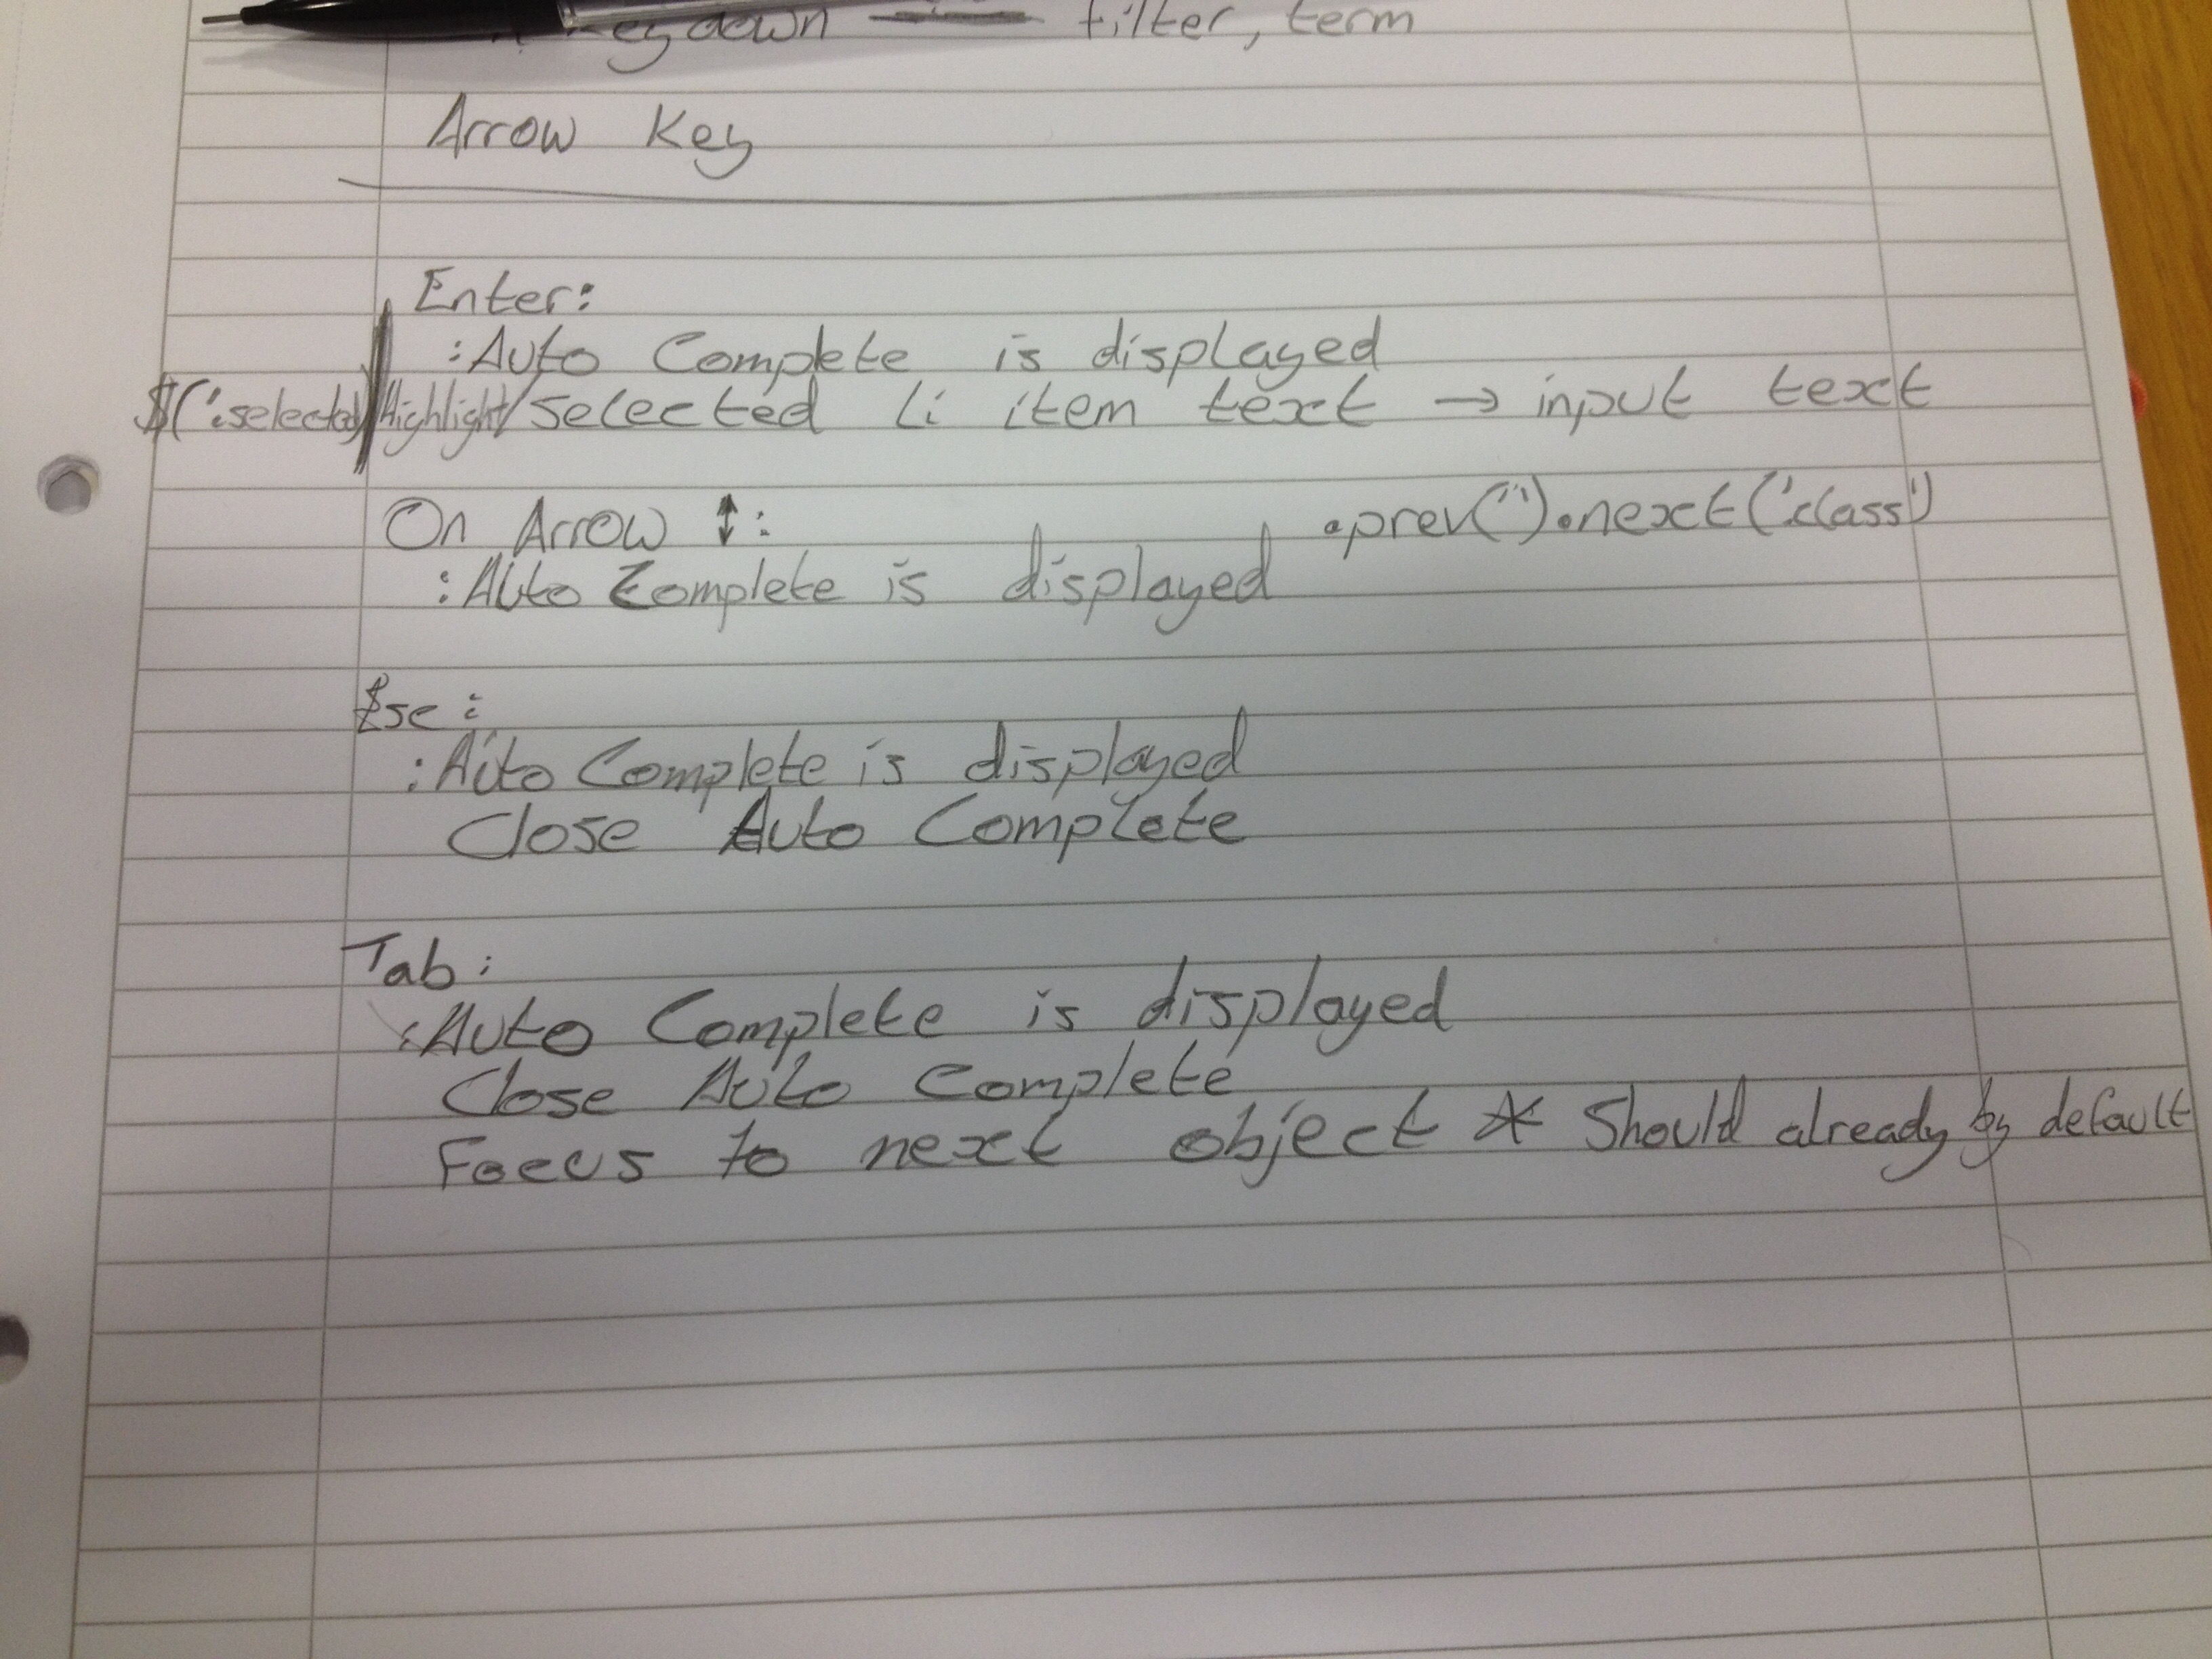 keydown filter, term
Arrow Key
Enter:
:Auto Complete is displayed
$('.selected') Highlight/selected li item text → input text
On Arrow ↕: .prev('').next('.class')
:Auto Complete is displayed
Esc:
:Auto Complete is displayed
Close Auto Complete
Tab:
:Auto Complete is displayed
Close Auto Complete
Focus to next object * Should already by default